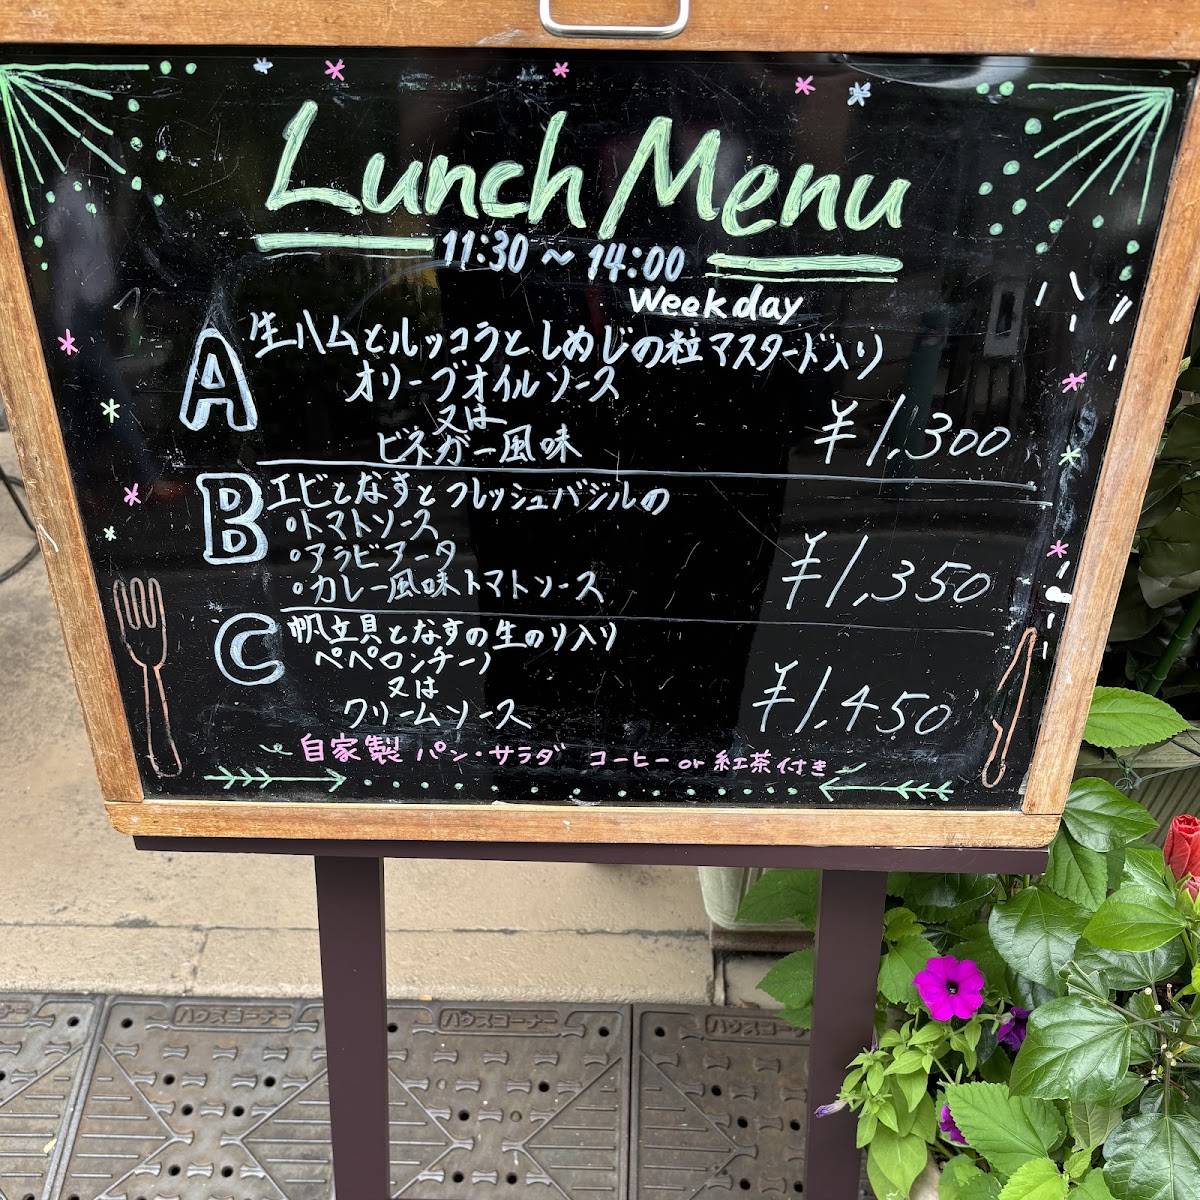 Lunch Menu
11:30 ~ 14:00
Weekday
A 生ハムとルッコラとしめじの粒マスタード入り
オリーブオイルソース
又は
ビネガー風味
¥1,300
B エビとなすとフレッシュバジルの
・トマトソース
・アラビアータ
・カレー風味トマトソース
¥1,350
C 帆立貝となすの生のり入り
ペペロンチーノ
又は
クリームソース
¥1,450
自家製 パン・サラダ コーヒー or 紅茶付き
ハウスコーナー
ハウスコーナー
ハウスコーナー